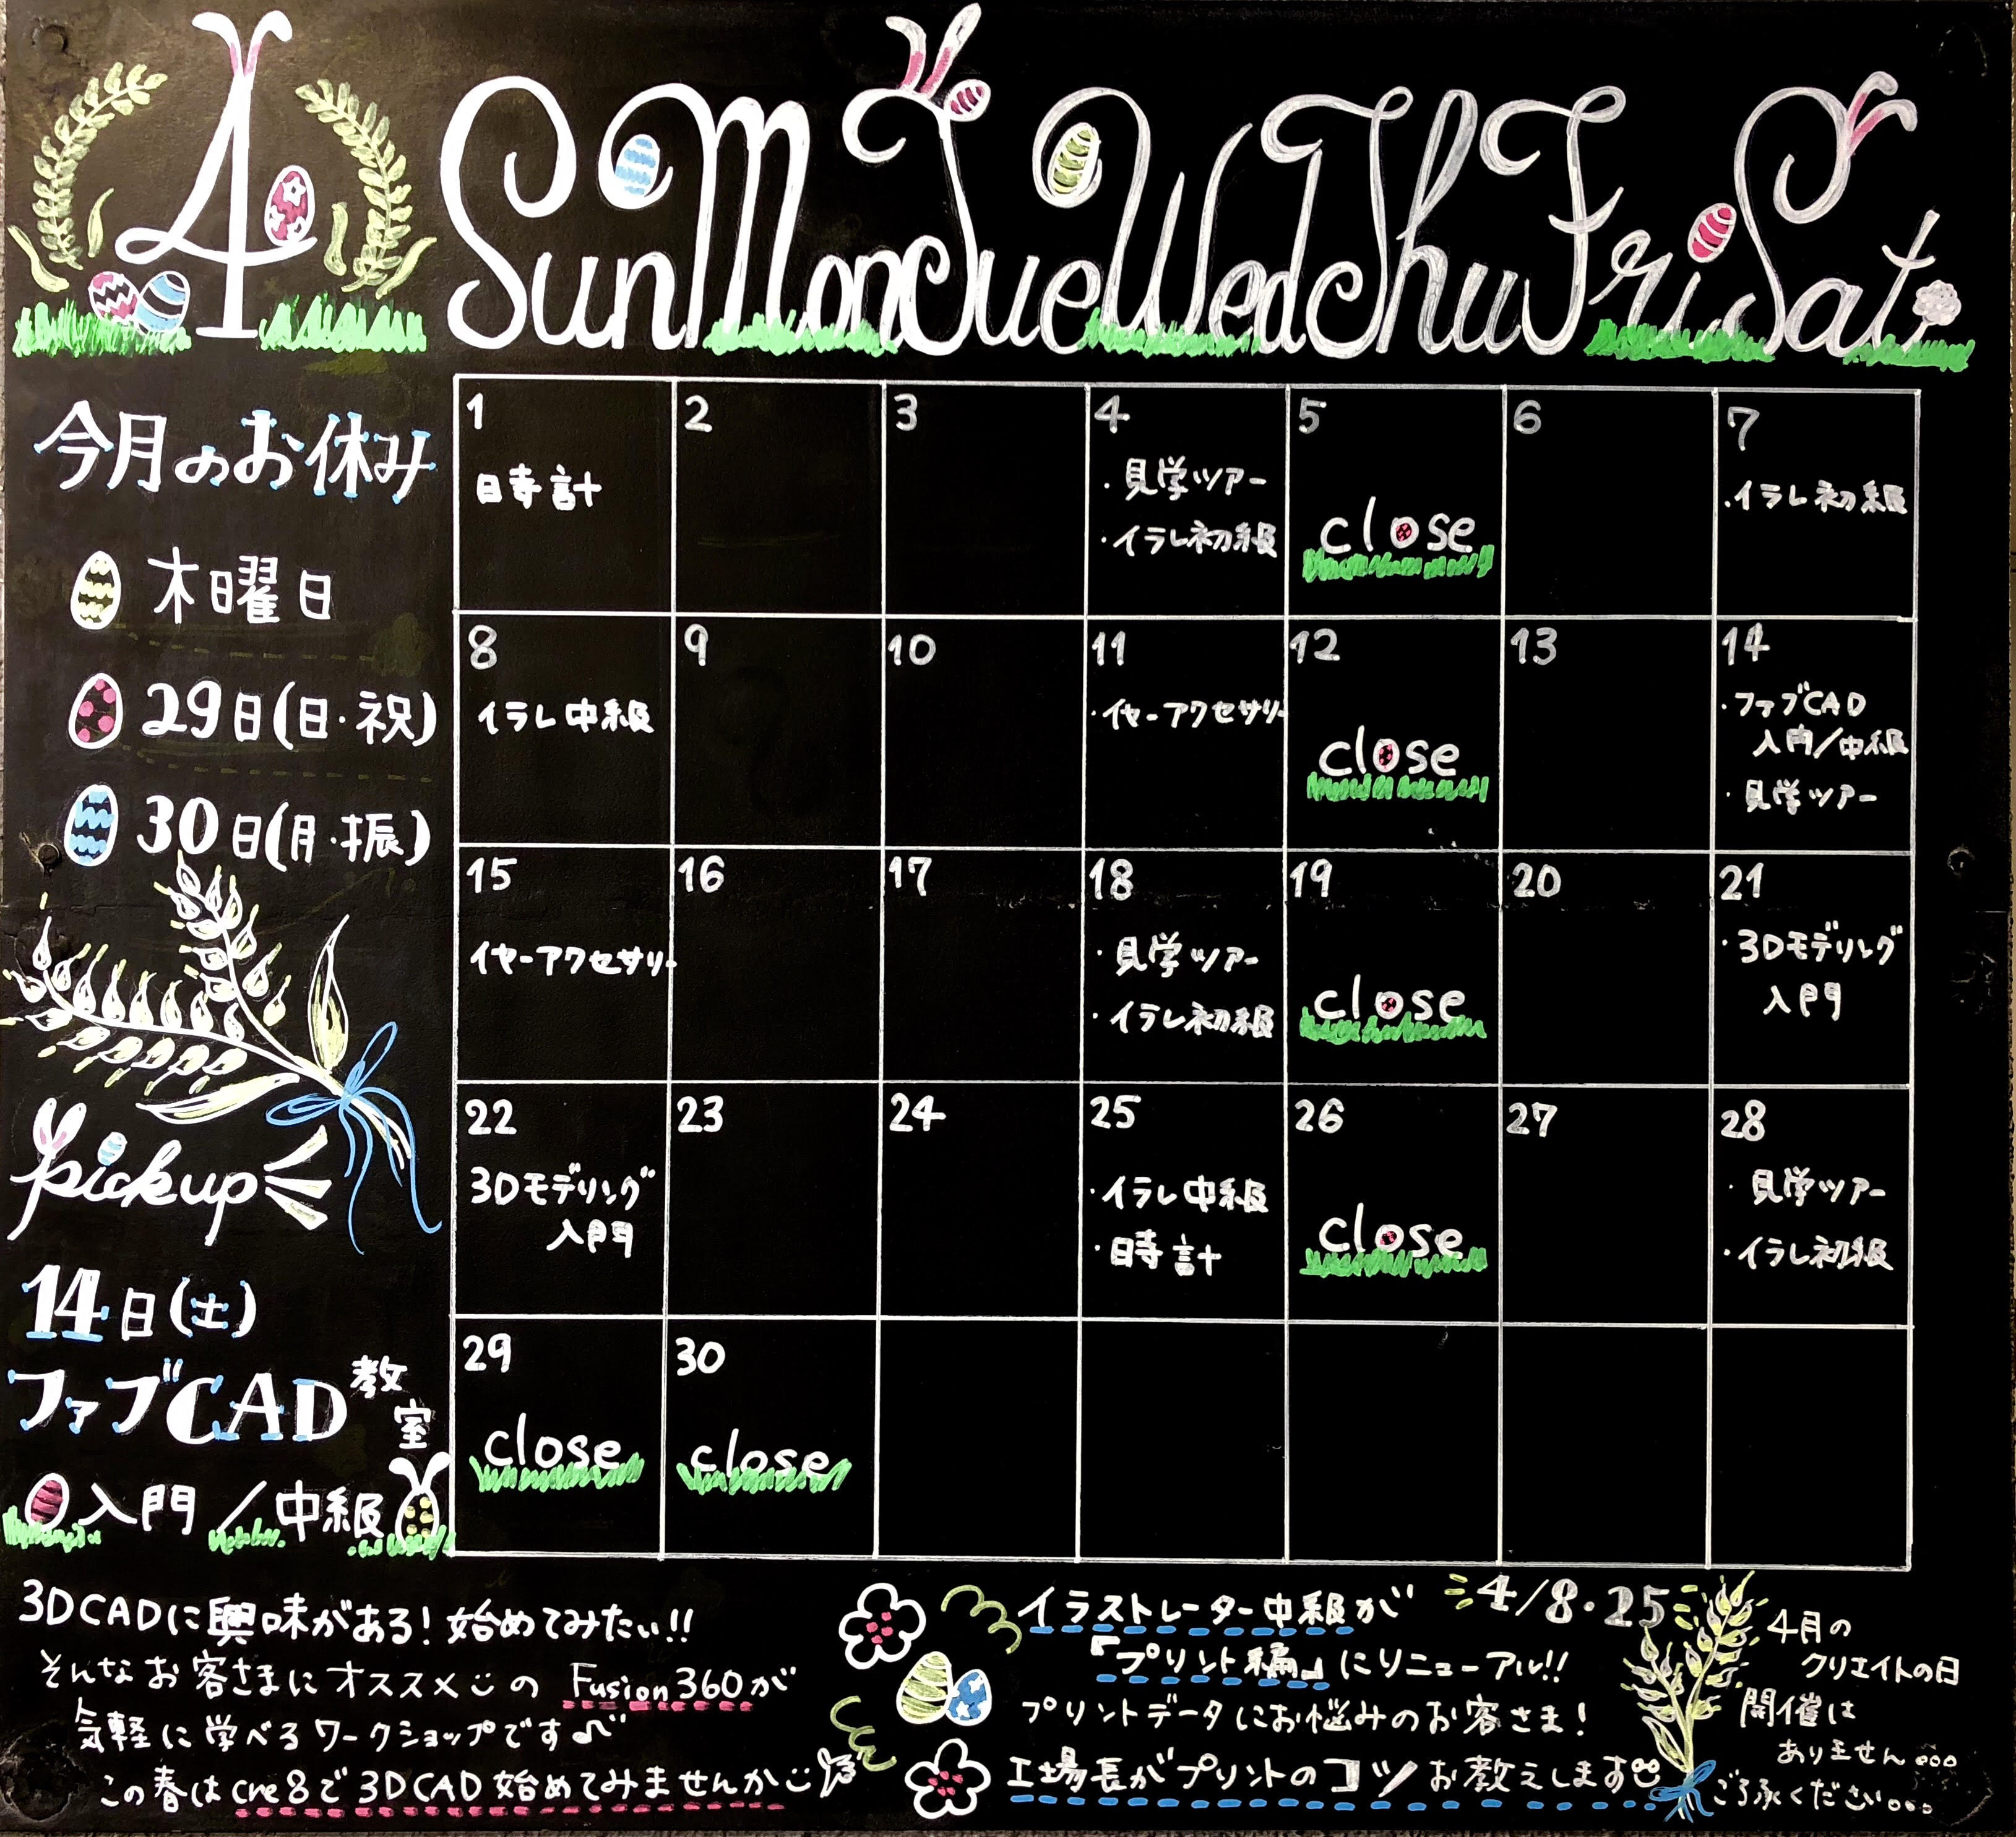 4
Sun Mon Tue Wed Thu Fri Sat
今月のお休み
木曜日
29日(日・祝)
30日(月・振)
pick up
14日(土)
ファブCAD教室
入門/中級
1
日時計
2
3
4
・見学ツアー
・イラレ初級
5
close
6
7
・イラレ初級
8
イラレ中級
9
10
11
・イヤーアクセサリー
12
close
13
14
・ファブCAD
入門/中級
・見学ツアー
15
イヤーアクセサリー
16
17
18
・見学ツアー
・イラレ初級
19
close
20
21
・3Dモデリング
入門
22
3Dモデリング
入門
23
24
25
・イラレ中級
・日時計
26
close
27
28
・見学ツアー
・イラレ初級
29
close
30
close
3DCADに興味がある!始めてみたい!!
そんなお客さまにオススメの Fusion360が
気軽に学べるワークショップです♪
この春はcre8で3DCAD始めてみませんか
イラストレーター中級が
4/8・25
『プリント編』にリニューアル!!
プリントデータにお悩みのお客さま!
工場長がプリントのコツお教えします
4月の
クリエイトの日
開催は
ありません。。。
ご了承ください。。。